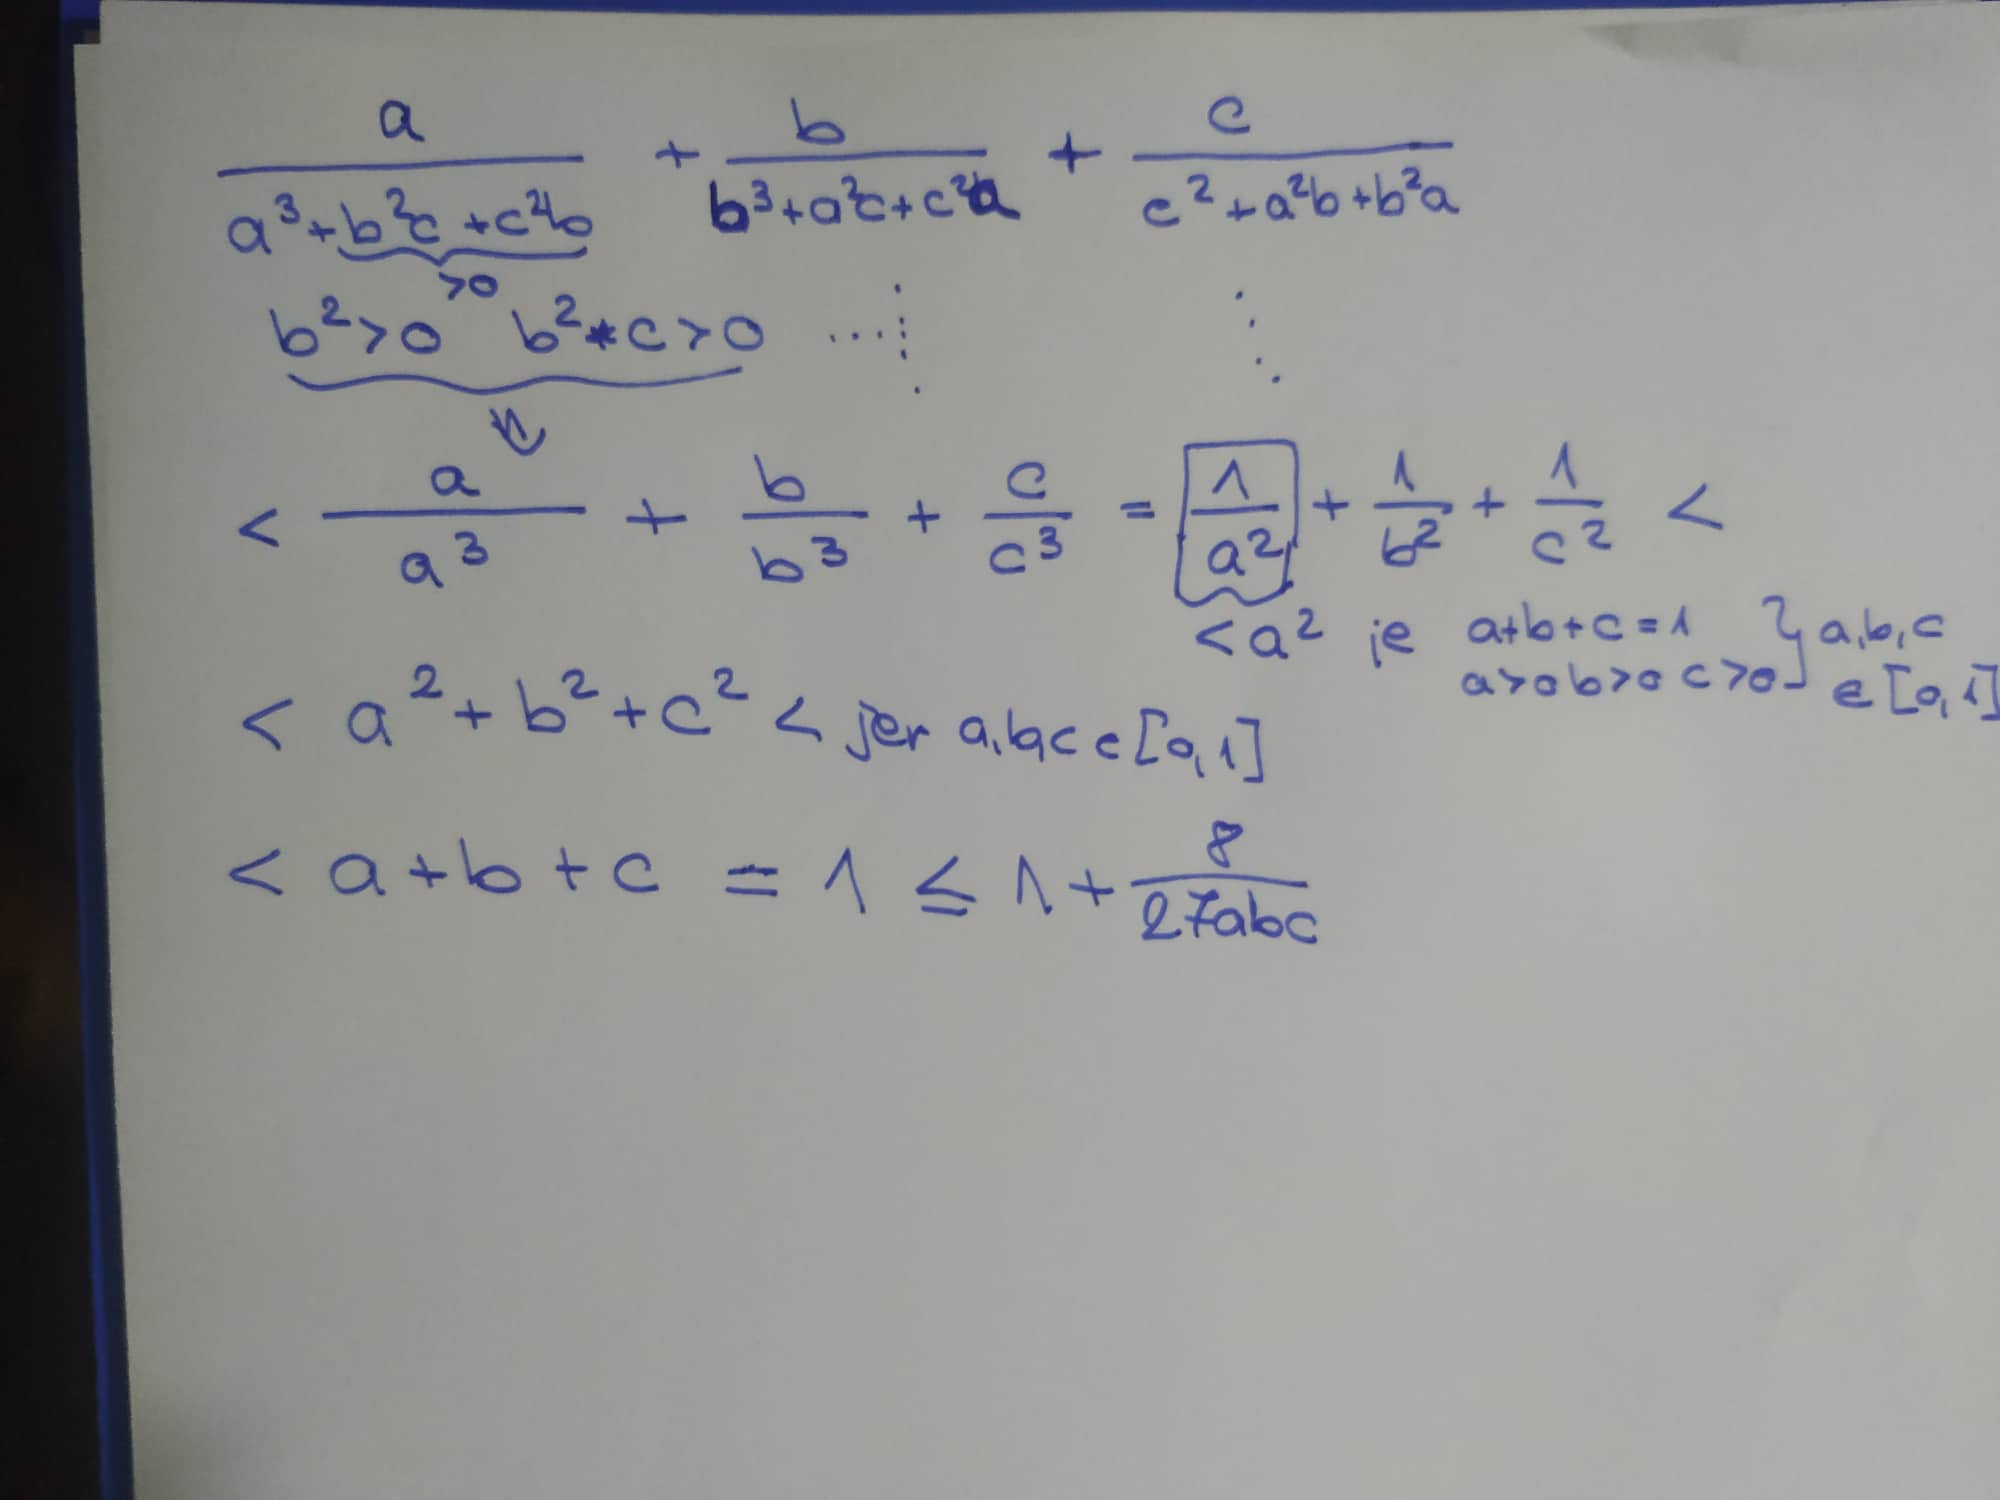 a/(a³+b²c+c²b) + b/(b³+a²c+c²a) + c/(c²+a²b+b²a)
>0
b²>0 b²*c>0 ...
< a/a³ + b/b³ + c/c³ = 1/a² + 1/b² + 1/c² <
<a² je a+b+c=1 } a,b,c
a>0 b>0 c>0 ∈ [0,1]
< a²+b²+c² < jer a,b,c ∈ [0,1]
< a+b+c = 1 ≤ 1+ 8/(27abc)